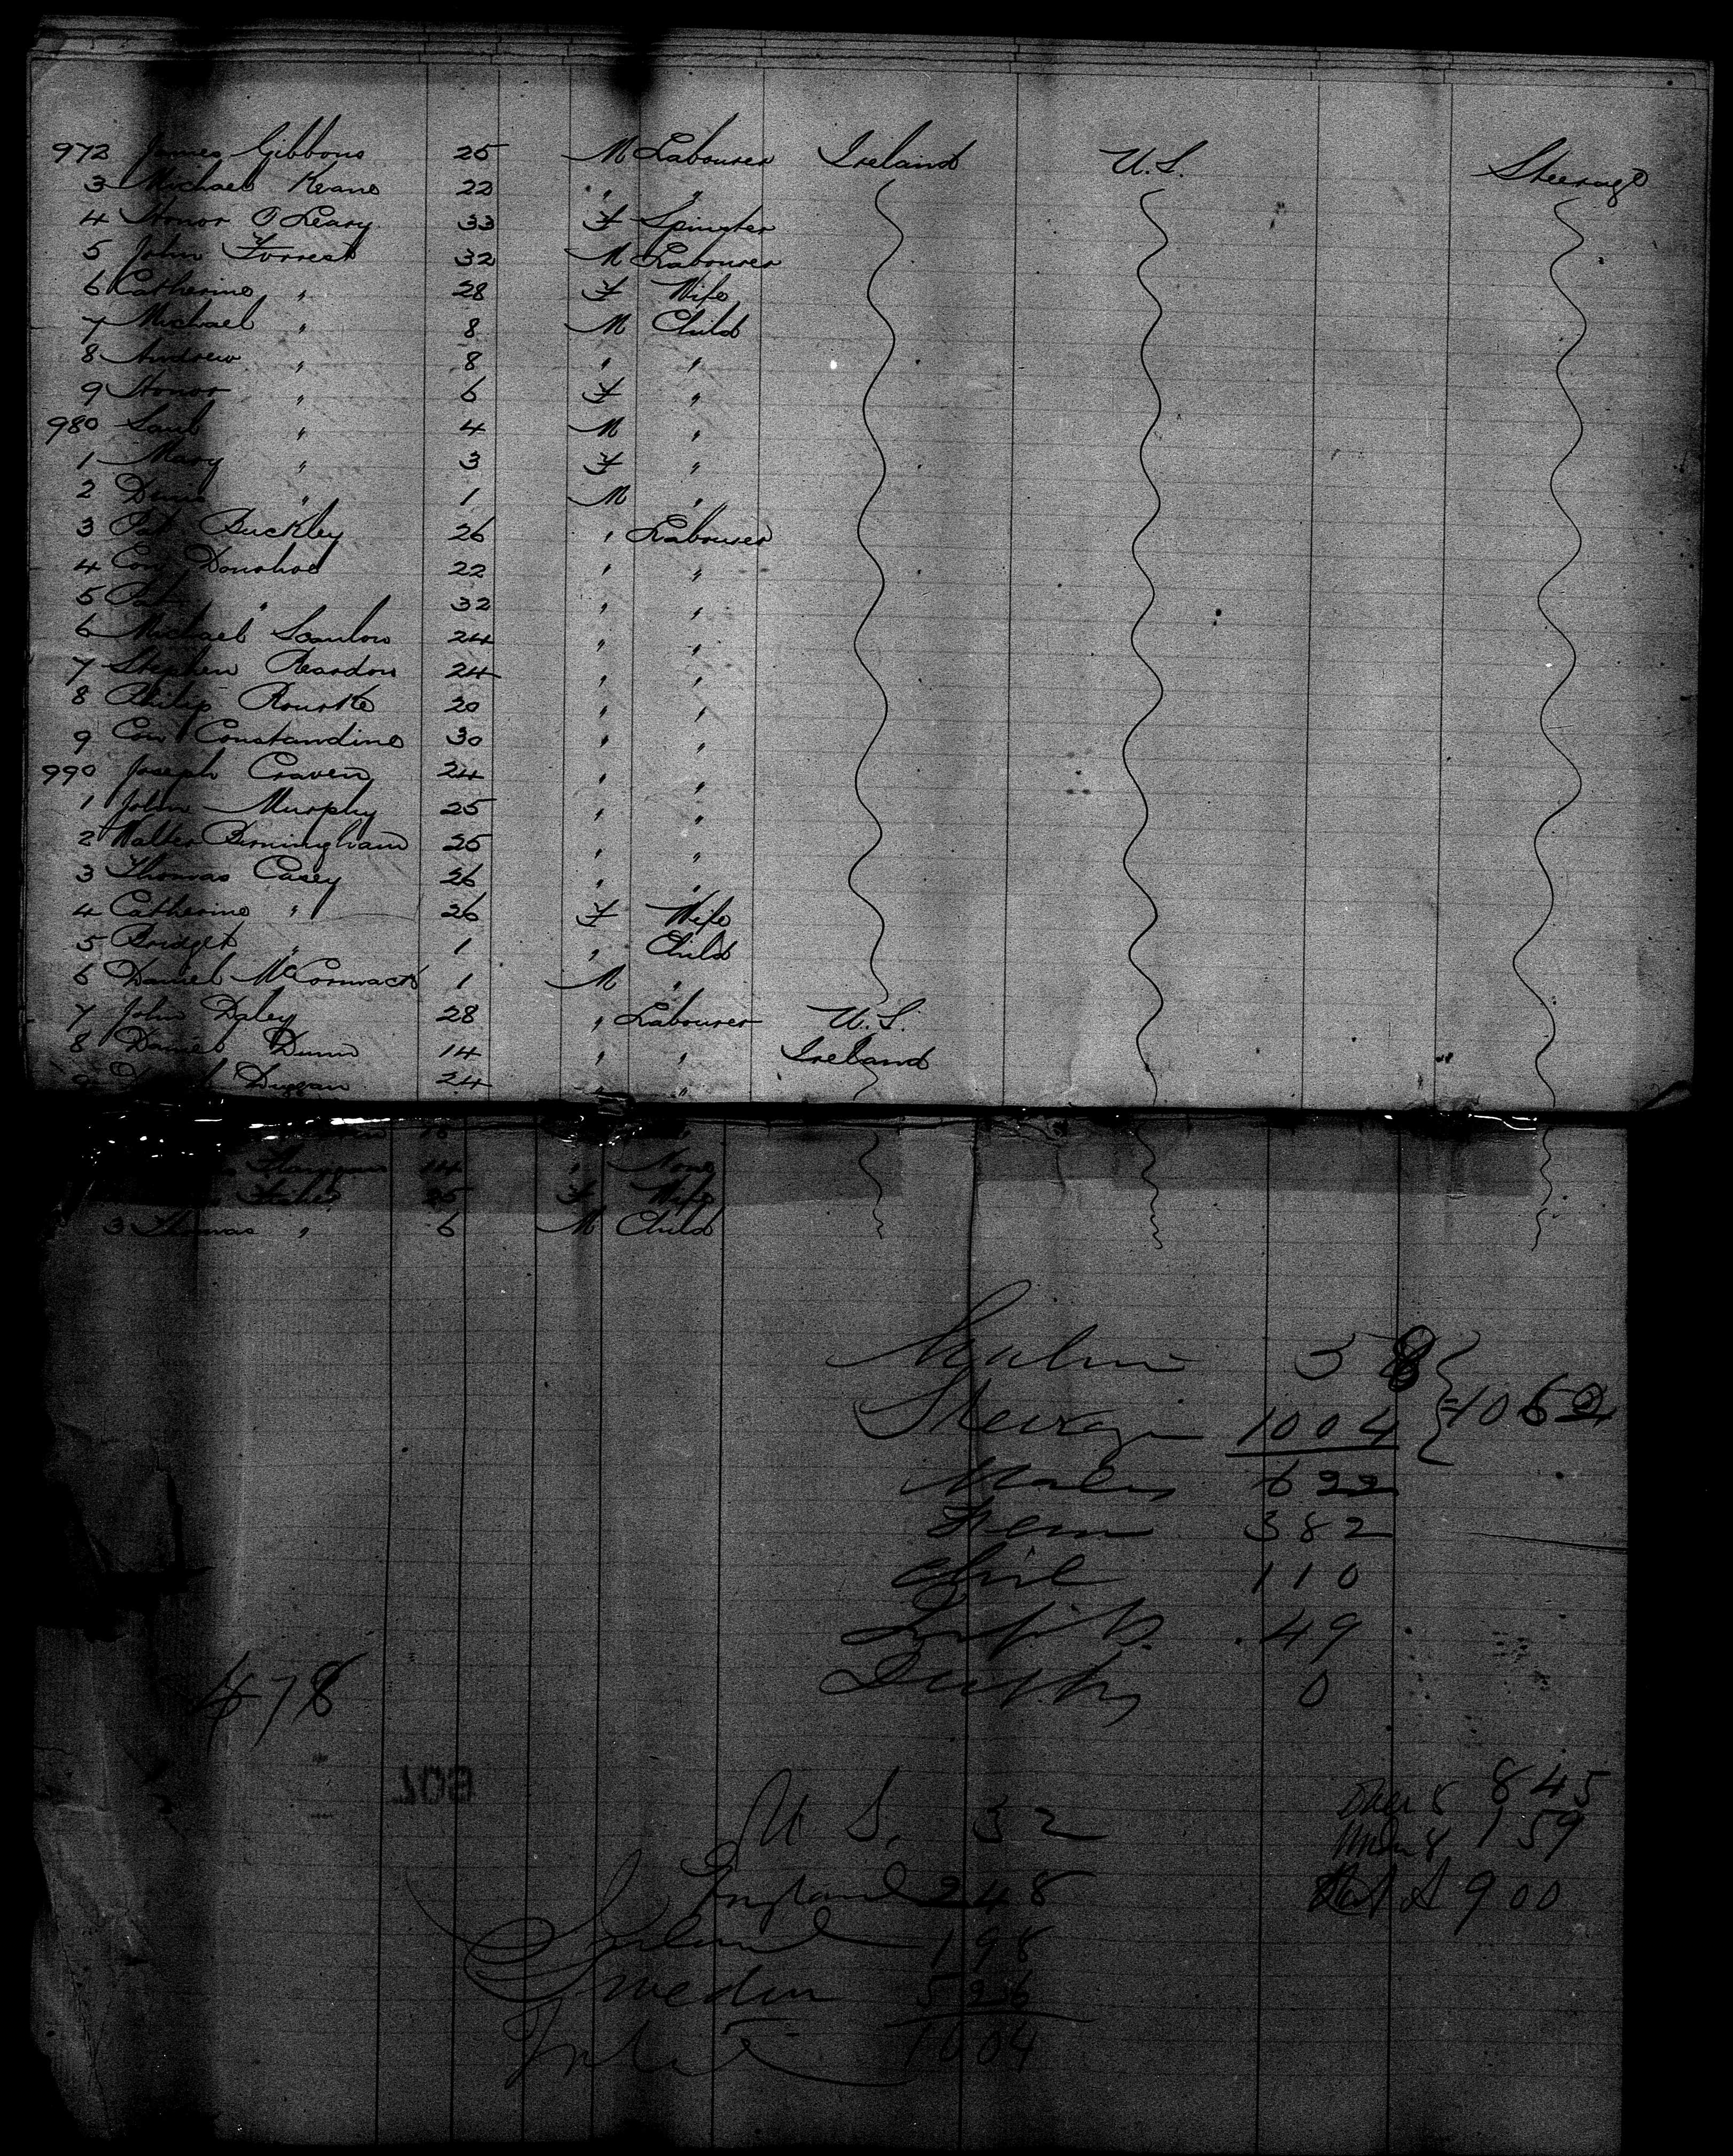 972 James Gibbons 25 M Labourer Ireland U.S. Steerage
3 Michael Keane 22 " "
4 Honor O'Leary 33 F Spinster
5 John Forrest 32 M Labourer
6 Catherine " 28 F Wife
7 Michael " 8 M Child
8 Andrew " 8 " "
9 Honor " 6 F "
980 " 4 M "
1 Mary " 3 F "
2 " 1 M "
3 Pat Buckley 26 " Labourer
4 Con Donohoe 22 " "
5 Pat " 32 " "
6 Michael Scanlon 24 " "
7 Stephen Reardon 24 " "
8 Philip Rourke 20 " "
9 Con Constandine 30 " "
990 Joseph Craven 24 " "
1 John Murphy 25 " "
2 Walter Birmingham 25 " "
3 Thomas Casey 26 " "
4 Catherine " 26 F Wife
5 Bridget " 1 " Child
6 Daniel McCormack 1 M "
7 John Daley 28 " Labourer U.S.
8 Daniel Dunn 14 " " Ireland
9 Duggan 24 " "
18
14 " None
25 F Wife
3 Thomas " 6 M Child
58
Steerage 1004 } = 1062
Males 622
Fem 382
Chil 110
49
0
478
U.S. 32
England 248
Ireland 198
Sweden 526
1004
Over 8 845
Under 8 159
900